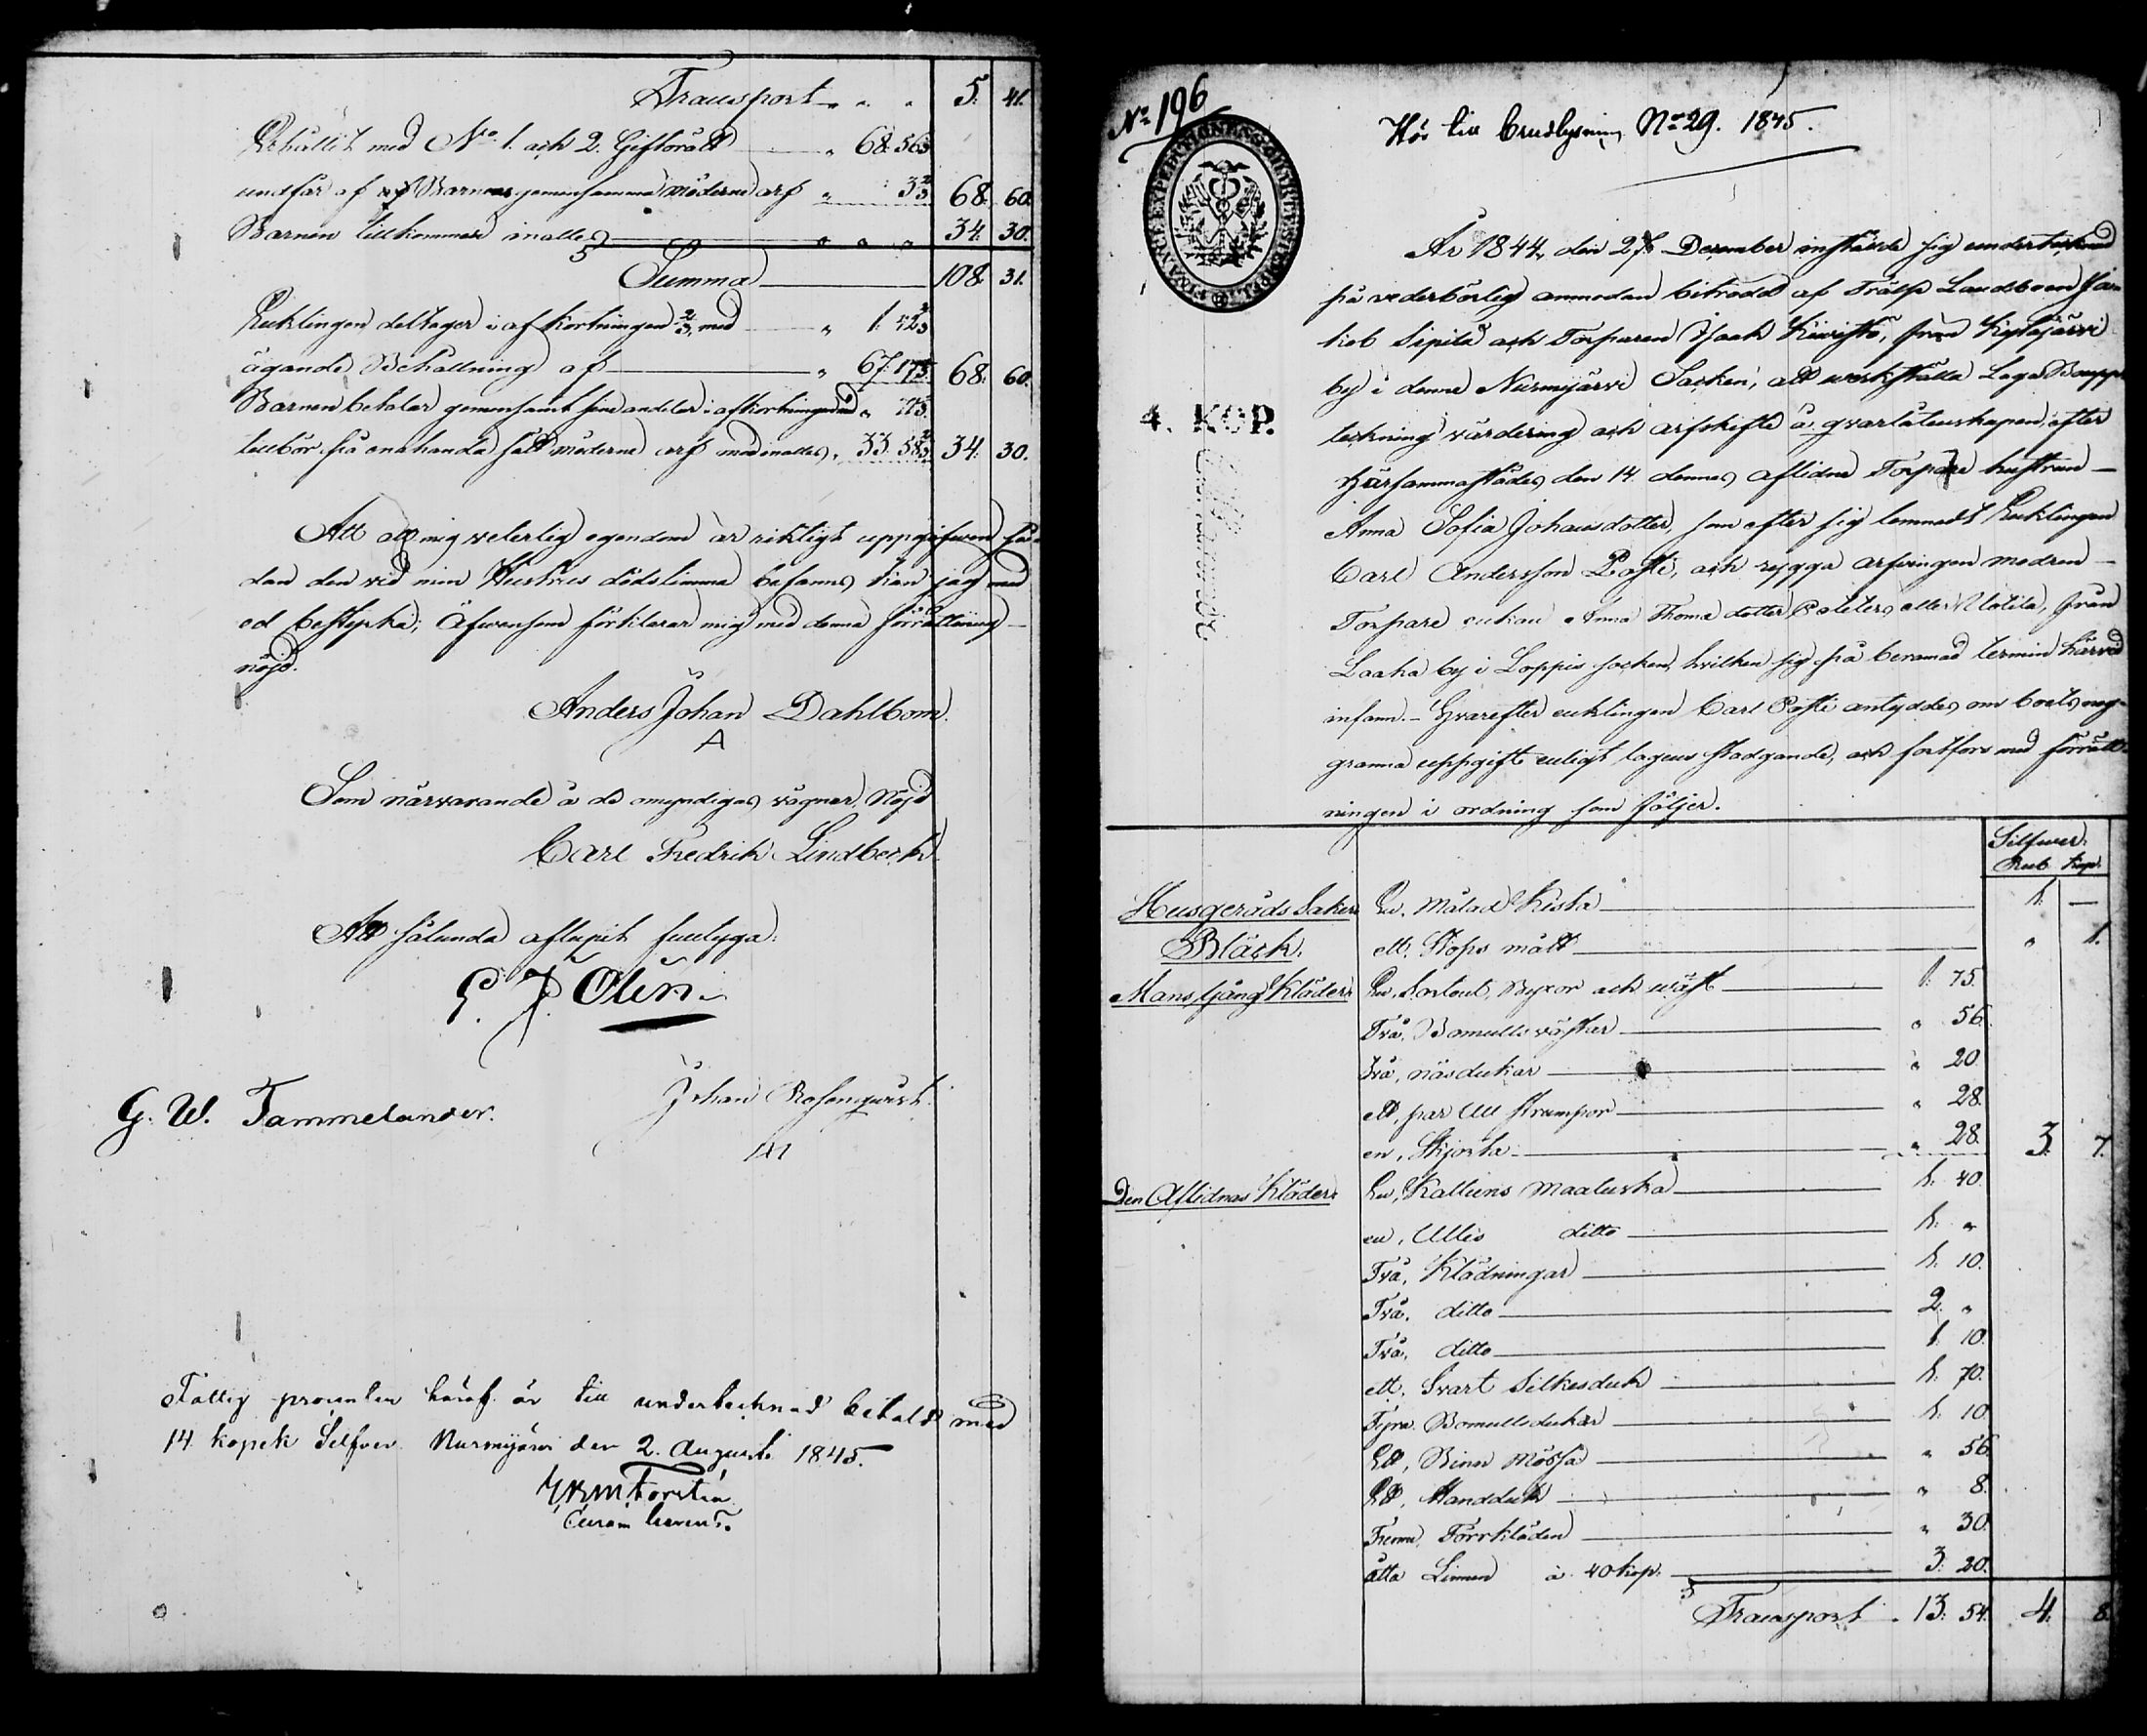 Transport 5. 41.
Behållit med No 1. och 2. Giftorätt " 68. 56⅔
undfår af Barnens gemensamma möderne arf " : 3⅓ 68. 60.
Barnen tillkommer inalles 34. 30.
Summa 108. 31.
Enklingen deltager i afkortningen ⅔ med " 1: 42⅔
ägande Behållning af " 67: 17⅓ 68: 60.
Barnen betalar gemensamt sine andeler i afkortningen med " 71⅓
tillbör på enahanda sätt möderne arf med inalles, 33. 58⅔ 34: 30.
Att all mig veterlig egendom är riktigt uppgifwen så-
dan den vid min Hustrus dödstimma befanns, kan jag med
ed bestyrka; Äfwensom förklarar mig med denna förrättning
nöjd.
Anders Johan Dahlbom.
A
Som närvarande å de omyndigas vägnar, Nöjd
Carl Fredrik Lindberk
Att sålunda aflupit
G. J. Olin
G. W. Tammelander.
Johan Rosenqwist.
Fattig procenten häraf är till undertecknad betald med
14 kopek Silfver. Nurmijärvi den 2. Augusti 1845.
Forstén
No 196
Hör till No 29. 1845.
FINANCE EXPEDITIONENS CHARTÆ STEMPEL
4. KOP.
År 1844, den 27. December instälde sig undertecknad
på vederbörlig anmodan biträdd af Trälss Landboen
Sipilä och Torparen Isaak Kiwistö, från Kytäjärvi
by i denna Nurmijärvi Socken, att werkställa Laga Boupp-
teckning värdering och arfskifte å qvarlåtenskapen, efter
härsammastädes den 14. dennes aflidne Torpare hustrun
Anna Sofia Johansdotter, som efter sig lemnadt Enklingen
Carl Andersson Posti, och rygga arfwingen modren
Torpare enkan Anna Thoma dotter eller från
Laaka by i Loppis socken, hvilken sig på beramad termin härvid
infann. Hvarefter enklingen Carl Posti antyddes om boets nog-
granna uppgift enligt lagens stadgande, och fortfors med förrätt-
ningen i ordning som följer.
Silfwer.
Rub. Kop.
Husgeråds Saker En, Målad Kista 1. —
Bläck. ett. Stops mått " 1.
Mans Gång Kläder. En, Sortout, Byxor och wäst 1: 75.
Två, Bomulls västar " 56.
Två, näsdukar " 20.
ett, par Ull strumpor " 28.
en, Skjorta " 28. 3. 7.
Den Aflidnas Kläder. En, Kattuns Maaluska 1. 40.
en, Ullis ditto 1. "
Två, Klädningar 1. 10.
Två. ditto 2. "
Två, ditto 1. 10.
ett, Svart Silkesduk 1. 70.
Fyra Bomullsdukar 1. 10.
Ett, Binn Mössa " 56.
Ett, Handduk " 8.
Förrkläden " 30.
åtta Linnen à 40 kop. 3. 20.
Transport 13: 54. 4. 8.